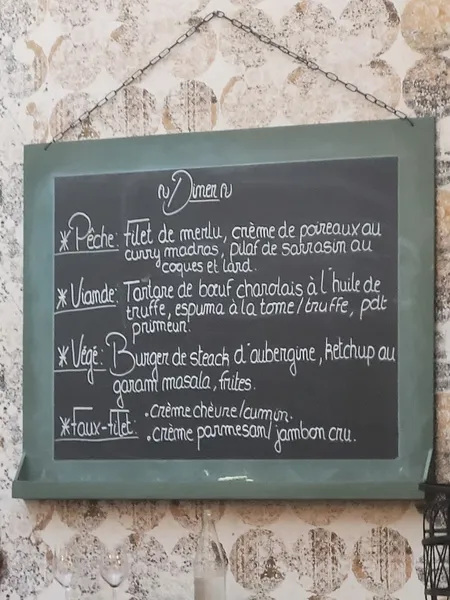 ~ Diner ~
* Pêche: filet de merlu, crème de poireaux au
curry madras, pilaf de sarrasin au
coques et lard.
* Viande: Tartare de bœuf charolais à l'huile de
truffe, espuma à la tome/truffe, pdt
primeur.
* Végé: Burger de steack d'aubergine, ketchup au
garam masala, frites.
* Faux-filet: .crème chèvre/cumin.
.crème parmesan/jambon cru.